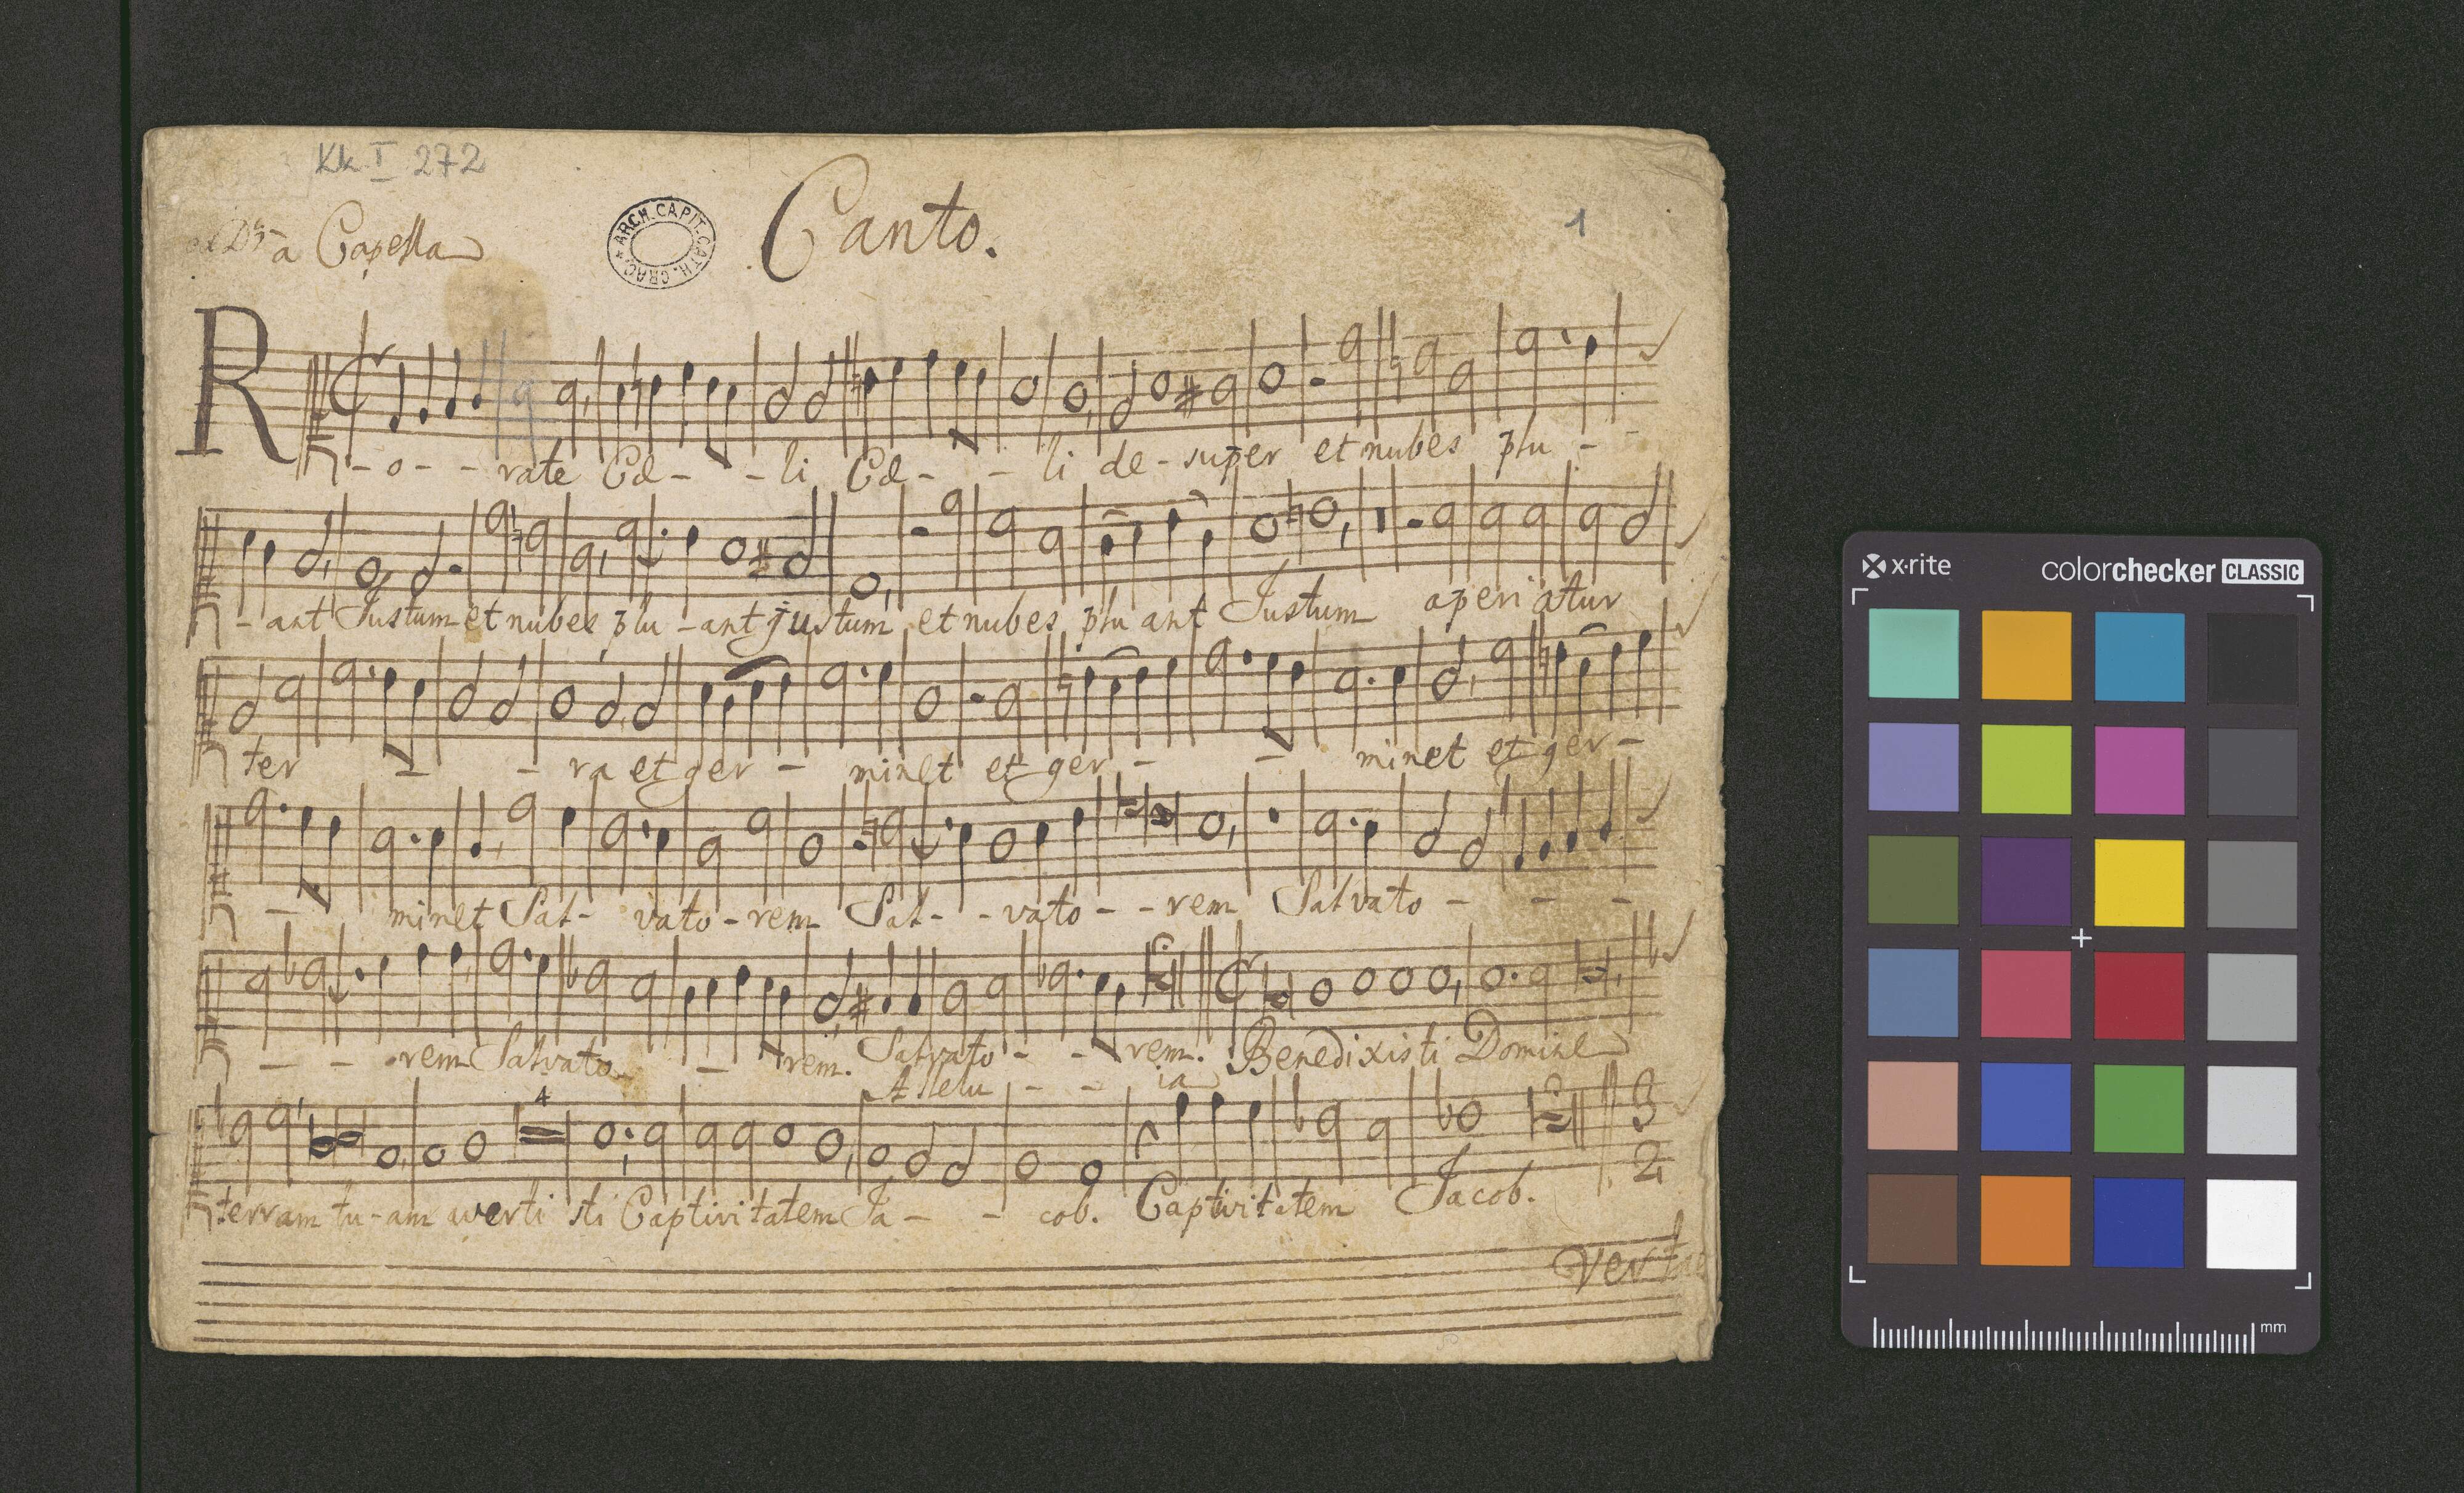 Kk I 272
a Capella
ARCH. CAPIT. CATH. CRAC.
Canto.
1
R - o - - rate Cæ - - li Cæ - - li de - super et nubes plu - -
- ant Justum et nubes plu - ant justum et nubes plu ant Justum aperiatur
ter - - ra et ger - minet et ger - - minet et ger -
- minet Sal - vato - rem Sal - - vato - - rem Salvato - - -
- - rem Salvato - - rem. Salvato - - rem. Benedixisti Domine
Allelu - - ia
4
terram tu - am averti sti Captivitatem Ja - - cob. Captivitatem Jacob.
3
2
x·rite
colorchecker CLASSIC
mm